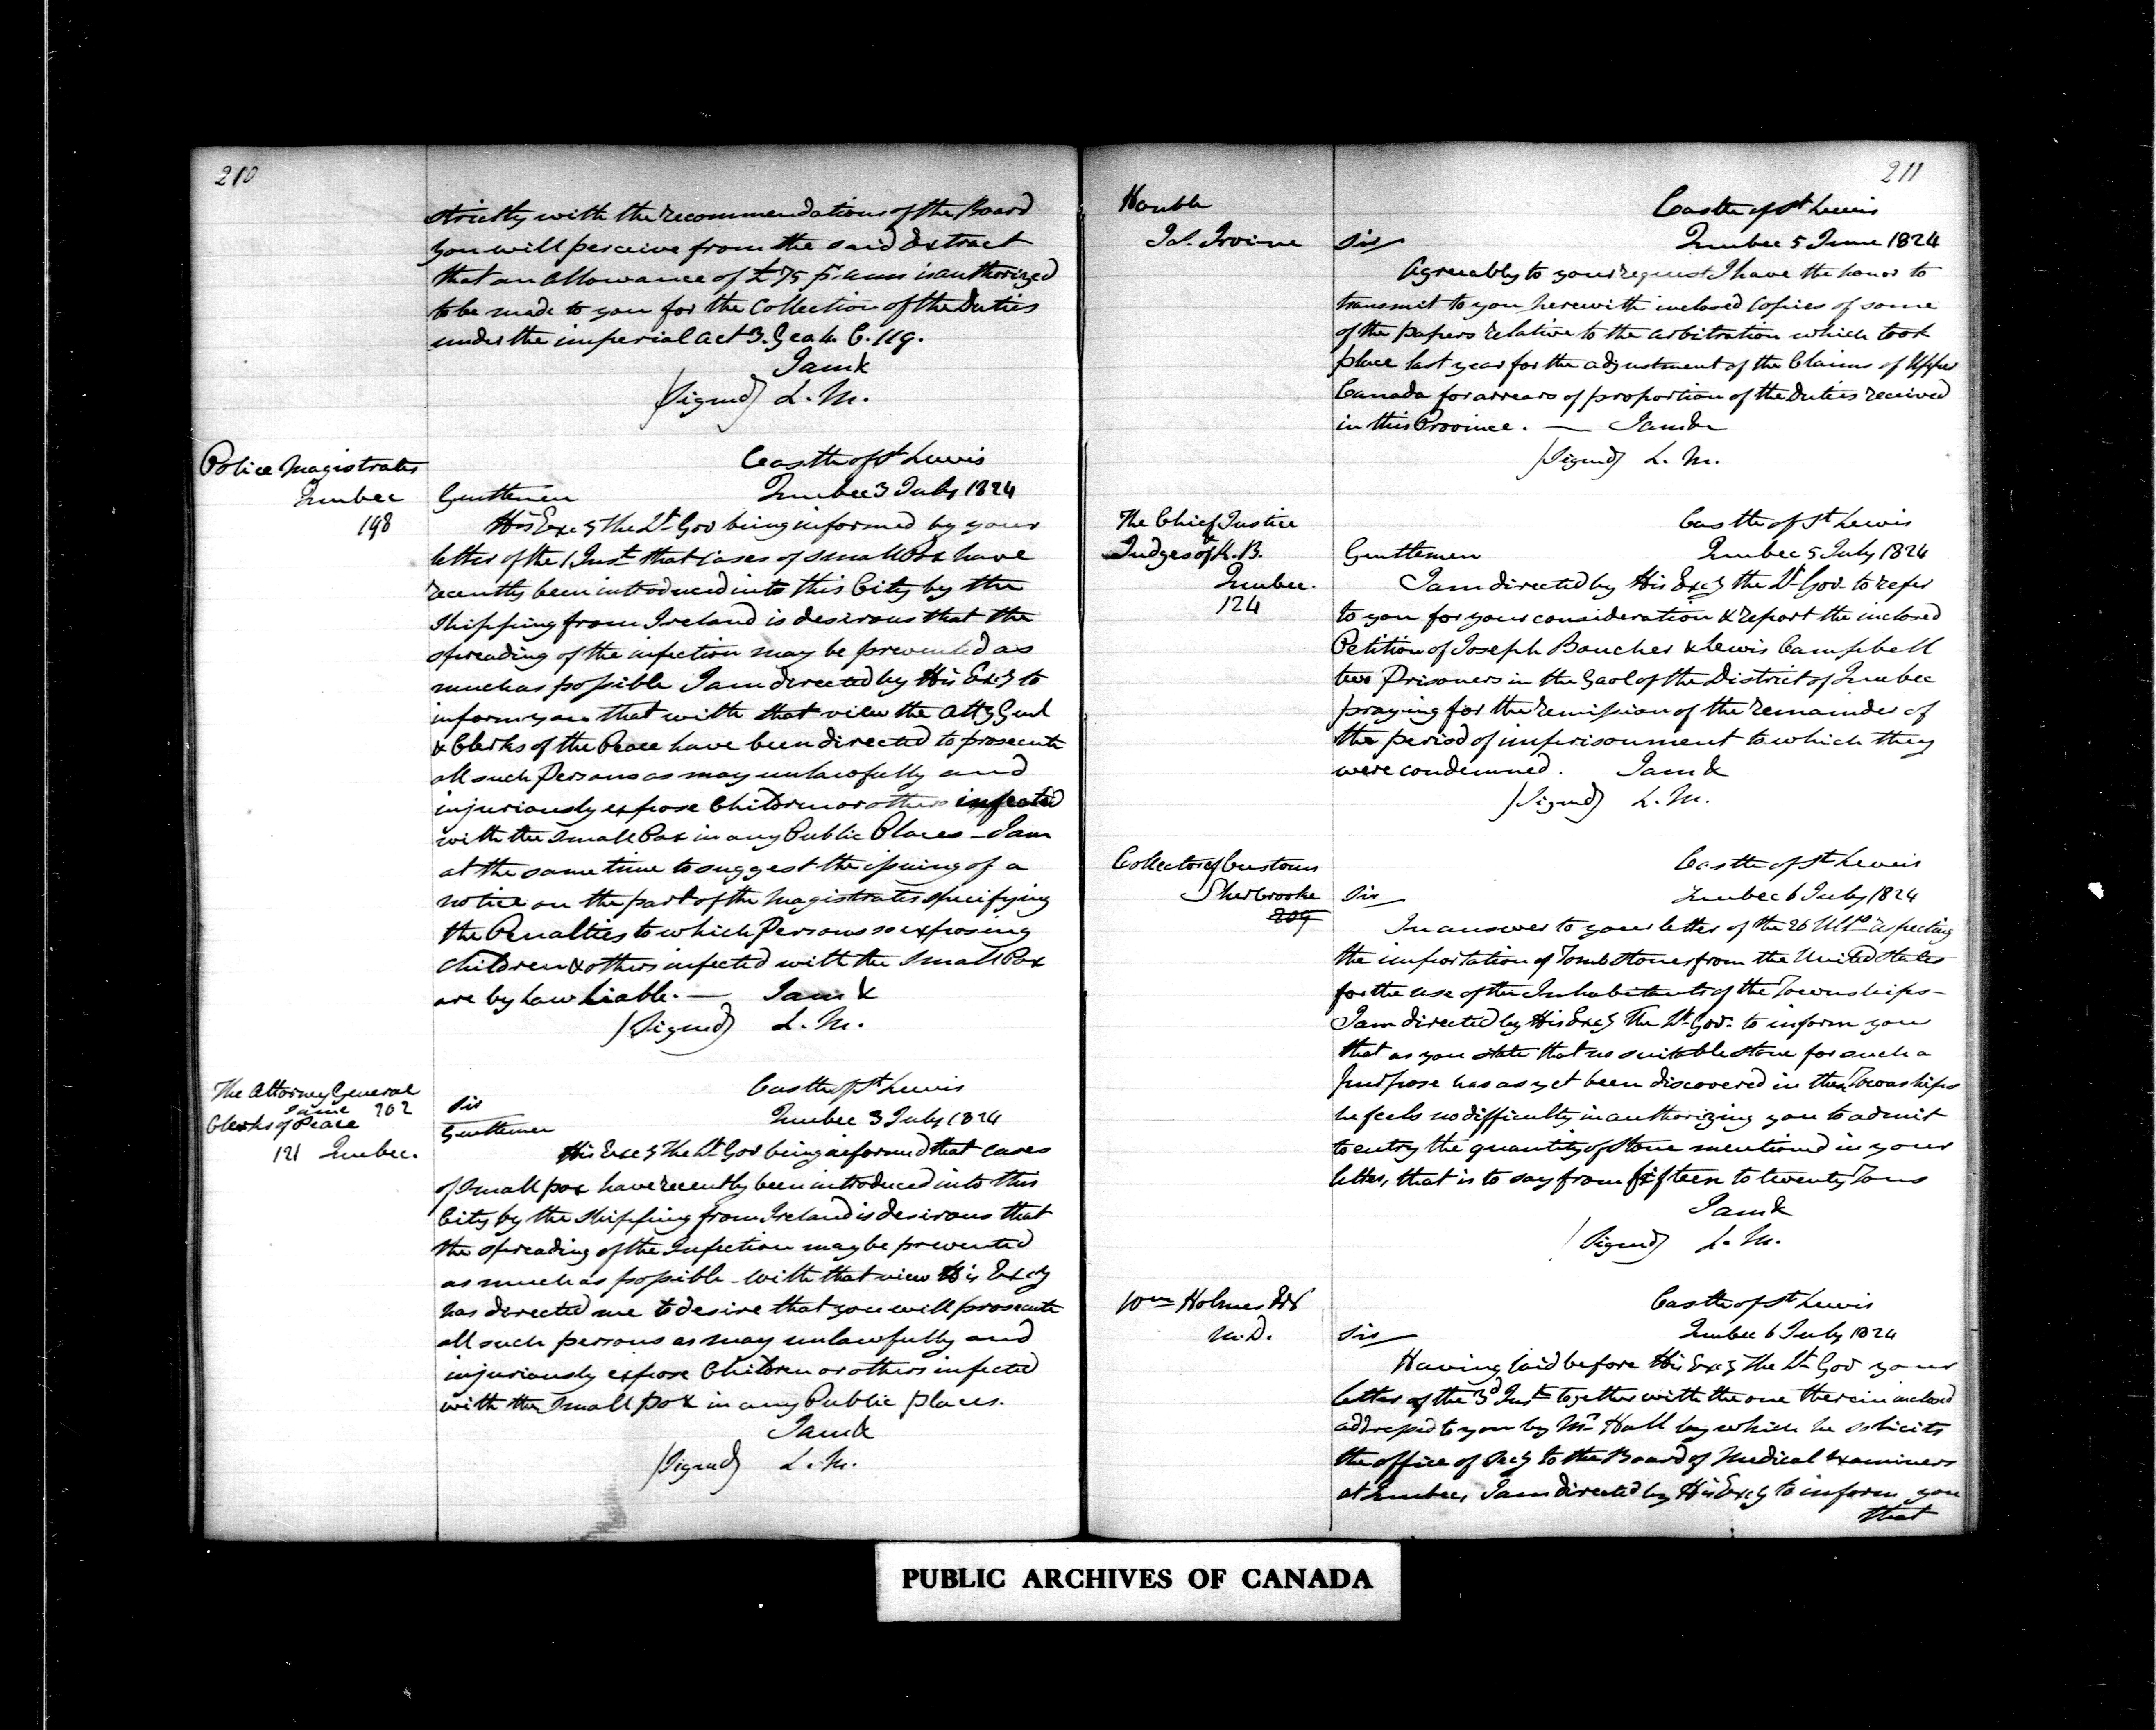 210
strictly with the recommendations of the Board
you will perceive from the said Extract
that an allowance of £75 pr. ann is authorized
to be made to you for the Collection of the Duties
under the imperial act 3. Geo 4. C. 119.
I am &
(Signed) L. M.
Police Magistrates
Quebec
198
Castle of St Lewis
Gentlemen Quebec 3 July 1824
His Excy the Lt Gov being informed by your
letter of the 1 Inst that cases of small Pox have
recently been introduced into this City by the
Shipping from Ireland is desirous that the
spreading of the infection may be prevented as
much as possible I am directed by His Excy to
inform you that with that view the Atty Genl
& Clerks of the Peace have been directed to prosecute
all such Persons as may unlawfully and
injuriously expose Children or others infected
with the Small Pox in any Public Places – I am
at the same time to suggest the issuing of a
notice on the part of the Magistrates specifying
the Penalties to which Persons so exposing
Children & others infected with the Small Pox
are by Law liable. — I am &
(Signed) L. M.
The Attorney General
Same 202
Clerks of Peace
121 Quebec.
Castle of St Lewis
Sir
Gentlemen Quebec 3 July 1824
His Excy the Lt Gov being informed that cases
of Small pox have recently been introduced into this
City by the Shipping from Ireland is desirous that
the spreading of the Infection may be prevented
as much as possible – With that view His Excy
has directed me to desire that you will prosecute
all such persons as may unlawfully and
injuriously expose Children or others infected
with the Small pox in any Public places.
I am &
(Signed) L. M.
211
Honble
Js. Irvine
Castle of St Lewis
Sir Quebec 5 June 1824
Agreeably to your request I have the honor to
transmit to you herewith inclosed Copies of some
of the papers relative to the arbitration which took
place last year for the adjustment of the Claims of Upper
Canada for arrears of proportion of the Duties received
in this Province. — I am &
(Signed) L. M.
The Chief Justice
&
Judges of K. B.
Quebec.
124
Castle of St Lewis
Gentlemen Quebec 5 July 1824
I am directed by His Excy the Lt Gov. to refer
to you for your consideration & report the inclosed
Petition of Joseph Boucher & Lewis Campbell
two Prisoners in the Gaol of the District of Quebec
praying for the remission of the remainder of
the period of imprisonment to which they
were condemned. I am &
(Signed) L. M.
Collector of Customs
Sherbrooke
209
Castle of St Lewis
Sir Quebec 6 July 1824
In answer to your letter of the 26 Ulto respecting
the importation of Tomb Stones from the United States
for the use of the Inhabitants of the Townships –
I am directed by His Excy The Lt Gov. to inform you
that as you state that no suitable stone for such a
purpose has as yet been discovered in the Townships
he feels no difficulty in authorizing you to admit
to entry the quantity of Stone mentioned in your
letter, that is to say from fifteen to twenty Tons
I am &
(Signed) L. M.
Wm Holmes Esq
M. D.
Castle of St Lewis
Sir Quebec 6 July 1824
Having laid before His Excy the Lt Gov your
letter of the 3d Inst together with the one therein inclosed
addressed to you by Mr Hall by which he solicits
the office of Secy to the Board of Medical Examiners
at Quebec, I am directed by His Excy to inform you
that
PUBLIC ARCHIVES OF CANADA